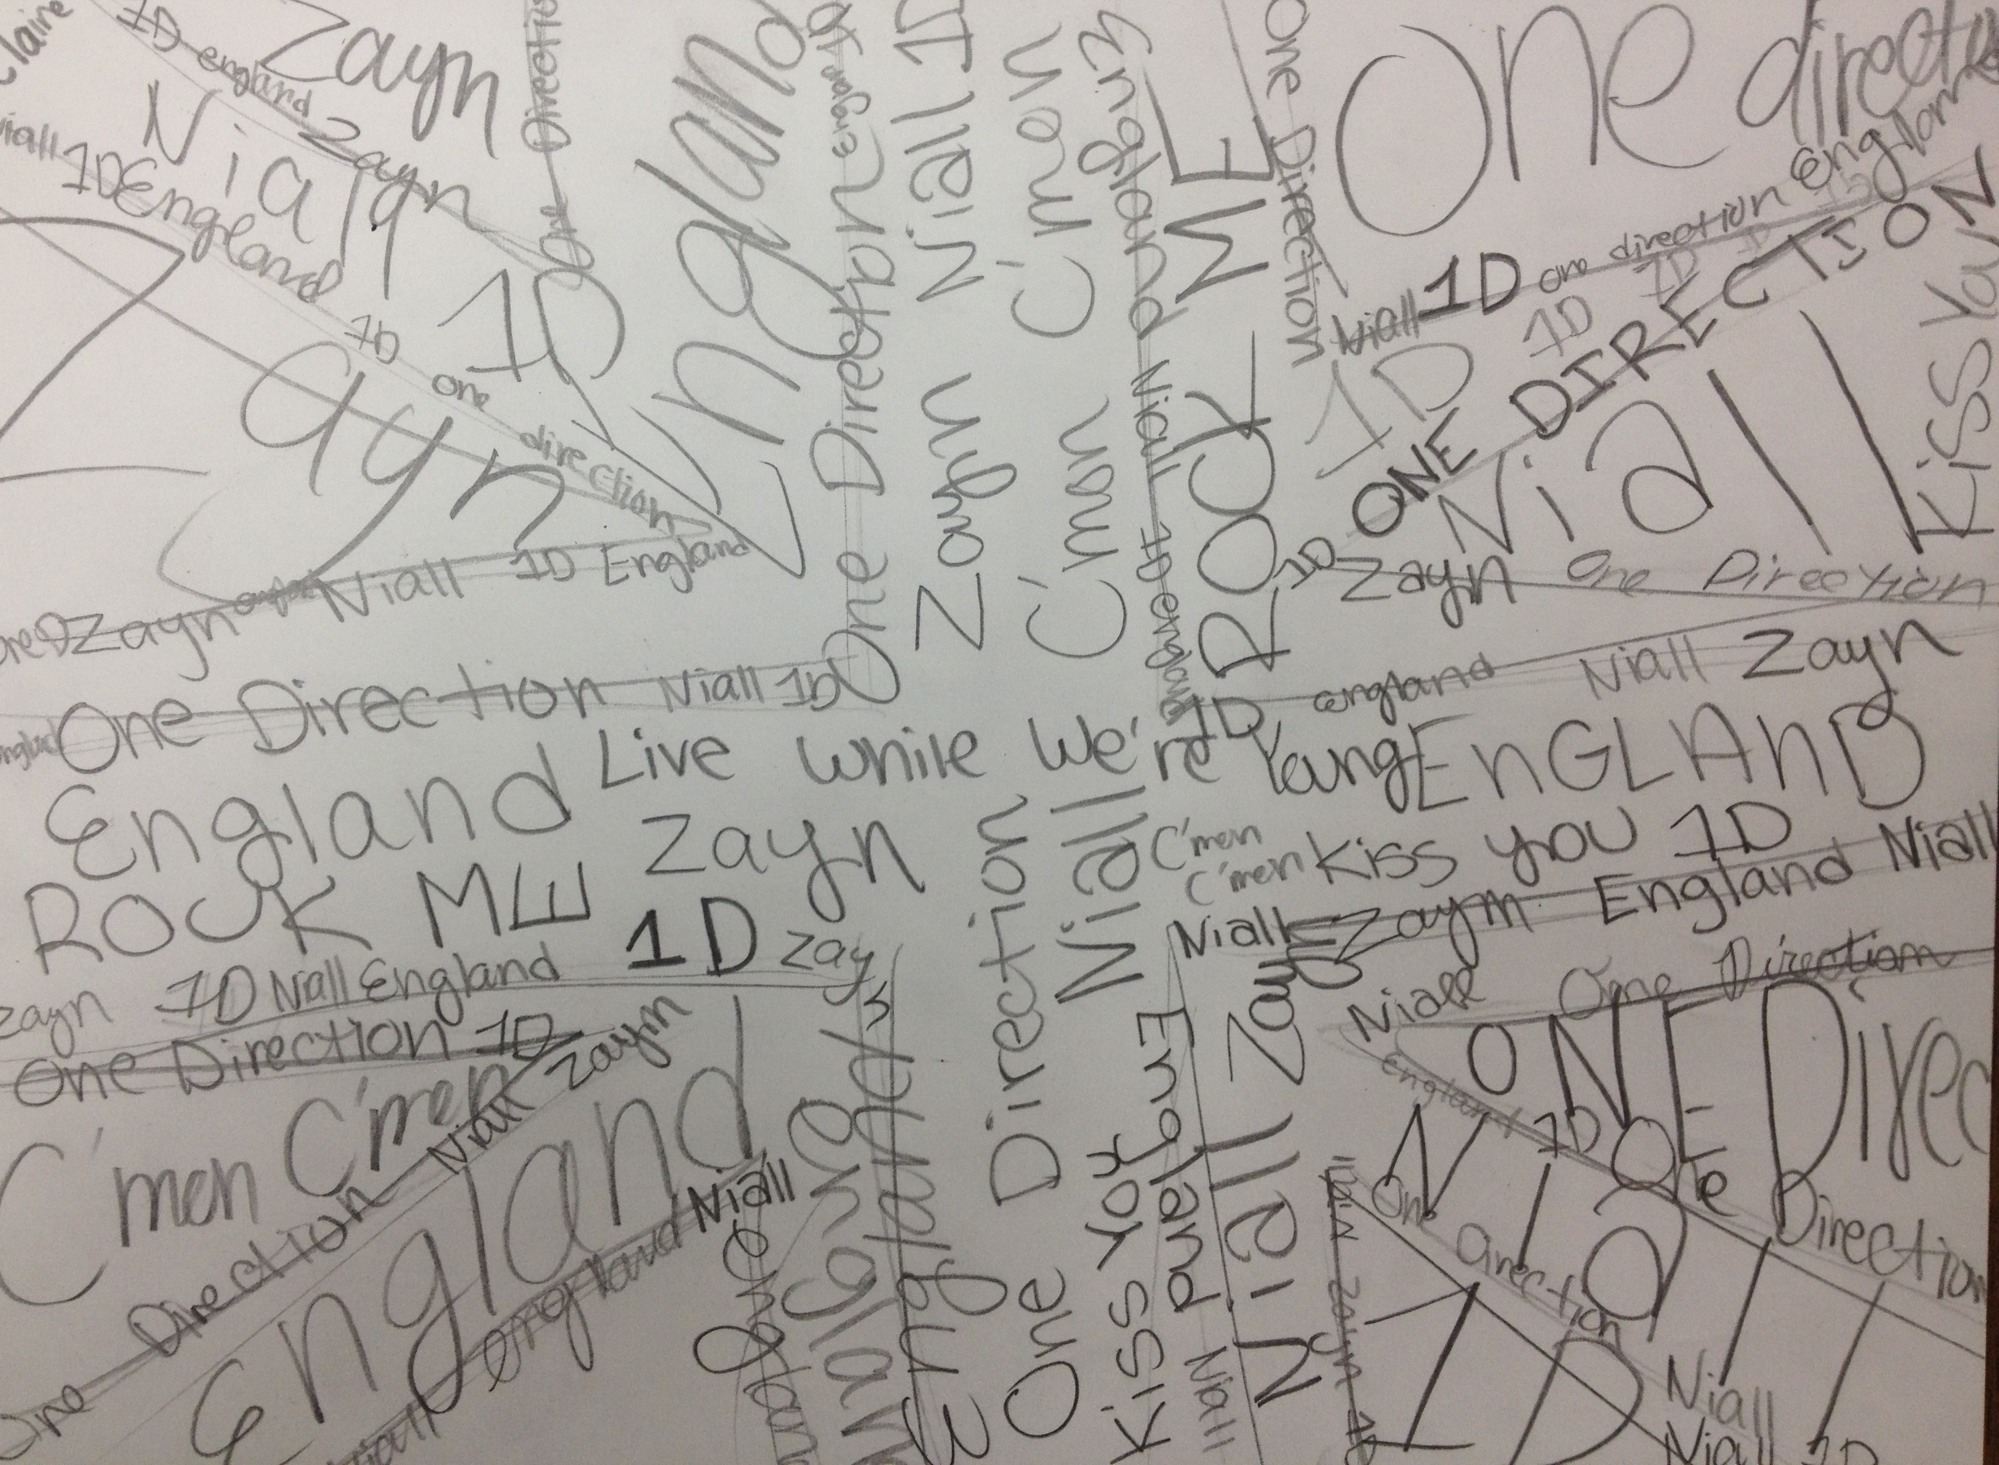 Claire
1D england Zayn
Zayn
Niall
Niall 1D England 1D one direction
One Direction
1D
England
Zayn
One D Zayn Niall 1D England
One Direction Niall 1D
One Direction England
Zayn Niall 1D
C'mon C'mon
England Niall 1D England
ROCK ME
One Direction
One direction
Niall 1D one direction England
1D 1D 1D
1D
1D ONE DIRECTION
Niall
Kiss You
Zayn One Direction
1D england Niall Zayn
England Live While We're Young ENGLAND
ROCK ME Zayn
C'mon
C'mon Kiss you 1D
Zayn 1D Niall England 1D Zayn
Niall Zayn England Niall
One Direction 1D
C'mon C'mon
One Direction Niall Zayn
England
Niall england Niall
England
One Direction
Niall
Kiss You
England
Niall
Niall Zayn
Niall One Direction
ONE Direc
england 1D One Direction
Niall
One direction
Niall Zayn 1D
1D
Niall
Niall 1D